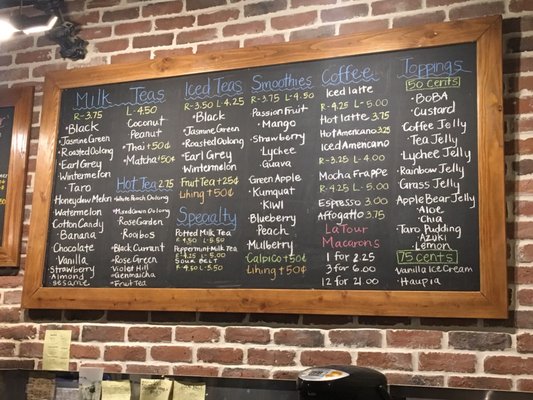 Milk Teas
R-3.75 L-4.50
Black
Jasmine Green
Roasted Oolong
Earl Grey
Wintermelon
Taro
Honeydew Melon
Watermelon
Cotton Candy
Banana
Chocolate
Vanilla
Strawberry
Almond
Sesame
Coconut
Peanut
Thai +50¢
Matcha +50¢
Hot Tea 2.75
White Peach Oolong
Rose Garden
Rooibos
Black Currant
Rose Green
Violet Hill
Genmaicha
Fruit Tea
Iced Teas
R-3.50 L-4.25
Black
Jasmine Green
Roasted Oolong
Earl Grey
Wintermelon
Fruit Tea +25¢
Lihing +50¢
Specialty
Potted Milk Tea
4.50 L-5.50
Peppermint Milk Tea
L-5.50
Sour Belt
R-4.50 5.50
Smoothies
R-3.75 L-4.50
Passion Fruit
Mango
Strawberry
Lychee
Guava
Green Apple
Kumquat
Kiwi
Blueberry
Peach
Mulberry
Calpico +50¢
Lihing +50¢
Coffee
Iced latte
R-4.25 L-5.00
Hot latte 3.75
Hot Americano 3.25
Iced Americano
R-3.25 L-4.00
Mocha Frappe
R-4.25 L-5.00
Espresso 3.00
Affogatto 3.75
La Tour
Macarons
1 for 2.25
3 for 6.00
12 for 21.00
Toppings
50 cents
BoBA
Custard
Coffee Jelly
Tea Jelly
Lychee Jelly
Rainbow Jelly
Grass Jelly
Apple Bear Jelly
Aloe
Chia
Taro Pudding
Azuki
Lemon
75 cents
Vanilla Ice Cream
Haupia